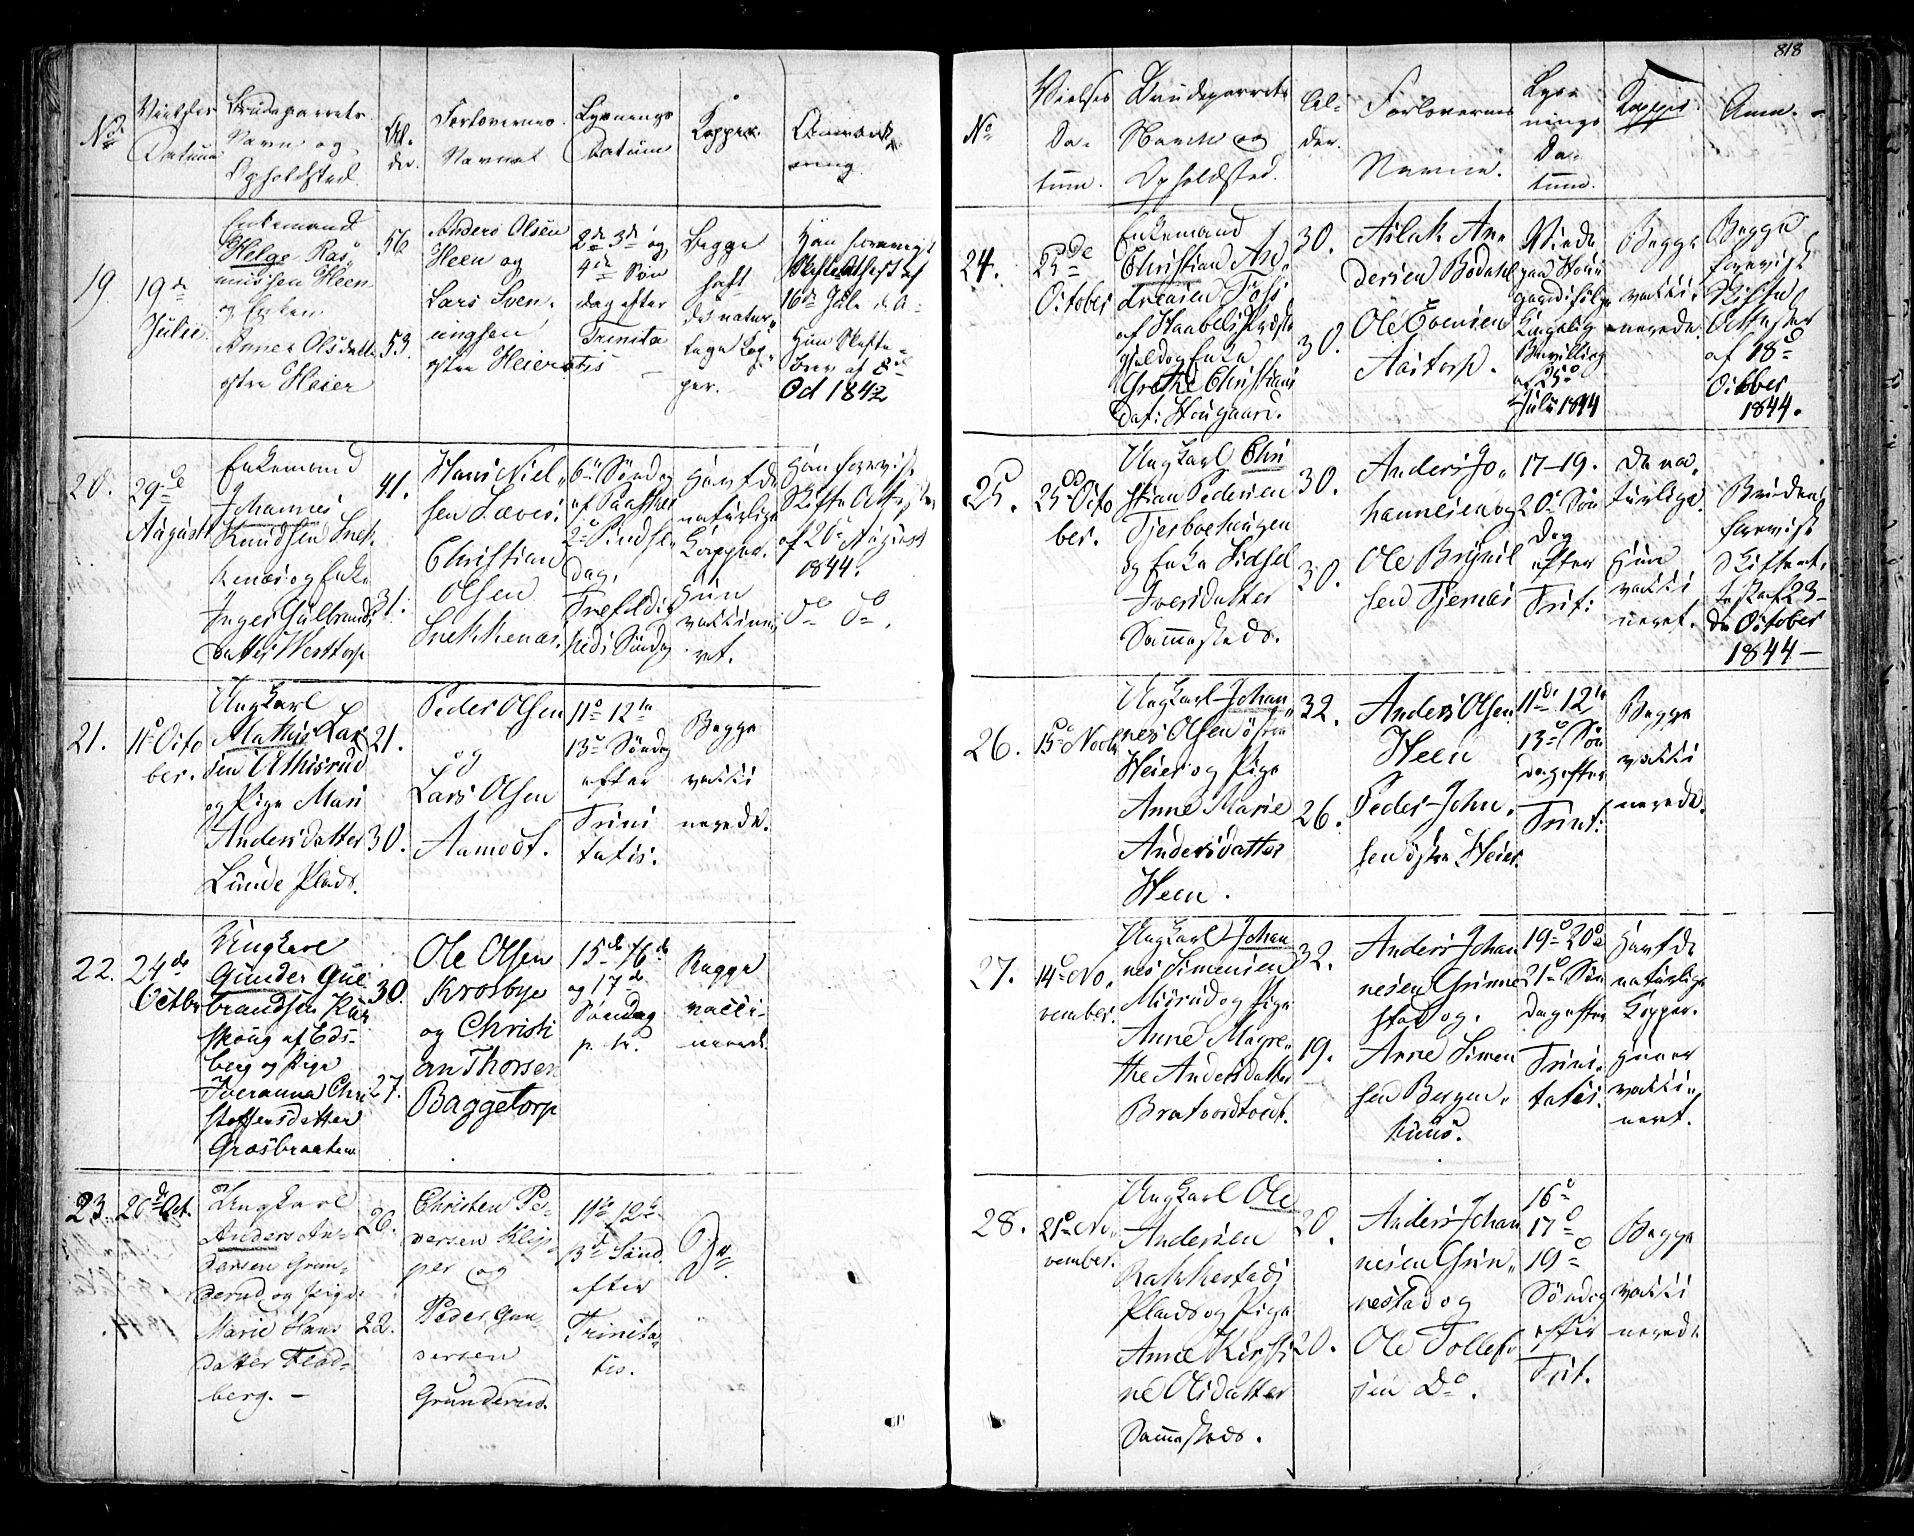 818
No
Vielses
Datum
Brudeparrets
Navn og
Opholdsted.
Al-
der.
Forlovernes
Navne
Lysnings
Datum
Kopper.
Anmærk-
ning.
19
19de
Julii.
Enkemand
Helge Ras-
mussen Heen
og Enken
Anne Olsdatter
østre Heier
56
53.
Anders Olsen
Heen og
Lars Sven-
ningsen
østre Heier
2de 3de og
4de Søn
dag efter
Trinita
tis –
Begge
haft
de natur-
lige Kop-
per.
Han foreviist
Skifteattest af
16de Julii d. A.
Hun Skifte-
brev af 8de
Oct 1842
20.
29de
August
Enkemand
Johannes
Knudsen Snek
kenæs og Enke
Inger Gulbrands
datter Westtorp
41.
31.
Hans Niel-
sen
Christian
Olsen
Snekkenæs.
6te Søndag
af Paaske
2de Pindse
Dag,
Trefoldig
heds Søndag
Havt de
naturlige
Kopper.
Hun
vaccine
ret.
Han forevist
Skifte Attest
af 26de August
1844.
Do Do.
21.
11te Octo
ber.
Ungkarl
Mathis Lar
sen Athisrud
og Pige Mari
Andersdatter
Lunde Plads.
21.
30.
Peder Olsen
og
Lars Olsen
Aamodt.
11te 12te
13de Søndag
efter
Trini
tatis.
Begge
vacci
nerede.
22.
24de
Octbr
Ungkarl
Gunder Gul
brandsen Kar
skoug af Eds-
berg og Pige
Iveranna Chri
stoffersdatter
Græsbraaten
30.
27.
Ole Olsen
Krosbye
og Christi
an Thorsen
Baggetorp
15de 16de
og 17de
Søndag
p. tr.
Begge
vacci-
nerede.
23.
26de Oct.
Ungkarl
Anders An-
dersen Grun-
derud og Pige
Marie Hans
datter Flad-
berg. –
26.
22.
Christen Pe-
dersen Klep
per og
Peder Gun
dersen
Grunderud.
11te 12te
13de Sønd.
efter
Trinita
tis.
Do
No
Vielses
Da-
tum.
Brudeparrets
Navne og
Opholdsted.
Al-
der.
Forlovernes
Navne.
Lys-
nings
Da-
tum.
Kopper.
Anm. –
24.
25de
October
Enkemand
Christian And-
reasen Foss
af Haabøl Præste
gjeld og Enke
Grethe Christians
Dat: Hougaard.
30.
30.
Aslak An-
dersen Bødahl
Ole Evensen
Aastorp.
Viede
paa
Kongelig
Bevilling
af 25de
Julii 1844
Begge
vacci-
nerede.
Begge
forevist
Skifte
Attester
af 18de
October
1844.
25.
25de Octo
ber.
Ungkarl Chri
stian Pedersen
Tjerboehaugen
og Enke Sidsel
Iversdatter
Sammesteds.
30.
30.
Anders Jo-
hannesen og
Ole Brynil
sen Tjernæs
17–19.
20de Søn
dag
efter
Trit:
De na-
turlige.
Hun
vacci
neret.
Bruden
forevist
Skifteat-
test af 23-
de October
1844 –
26.
15de Novbr
Ungkarl Johan
nes Olsen østre
Heier og Pige
Anne Marie
Andersdatter
Heen.
32.
26.
Anders Olsen
Heen
Peder John-
sen østre Heier.
11te 12te
13de Søn
dag efter
Trint:
Begge
vacci
nerede.
27.
14de No-
vember.
Ungkarl Johan
nes Simensen
Misrud og Pige
Anne Magre-
the Andersdatter
Bratvordtvedt.
32.
19.
Anders Johan
nesen Grinne
stad og.
Arne Simen
sen Bergen-
huus.
19de 20de
21de Søn
dag efter
Trini-
tatis.
Havt de
naturlige
Kopper.
Hun er
vacci-
neret.
28.
21de No-
vember.
Ungkarl Ole
Andersen
Rakkestads
Plads og Pige
Anne Kirsti
ne Olsdatter
Sammesteds.
20.
20.
Anders Johan
nesen Grin-
nestad og
Ole Tollef-
sen Do.
16de
17de
19de
Søndag
efter
Trit.
Begge
vacci
nerede